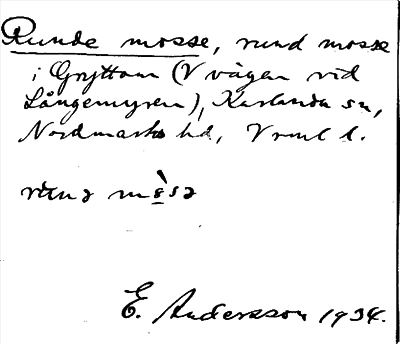 Runde mosse, rund mosse
i Gryttom (V vägen vid
Långemyren), Karlanda sn,
Nordmarks hd, Vrml l.
E. Andersson 1934.